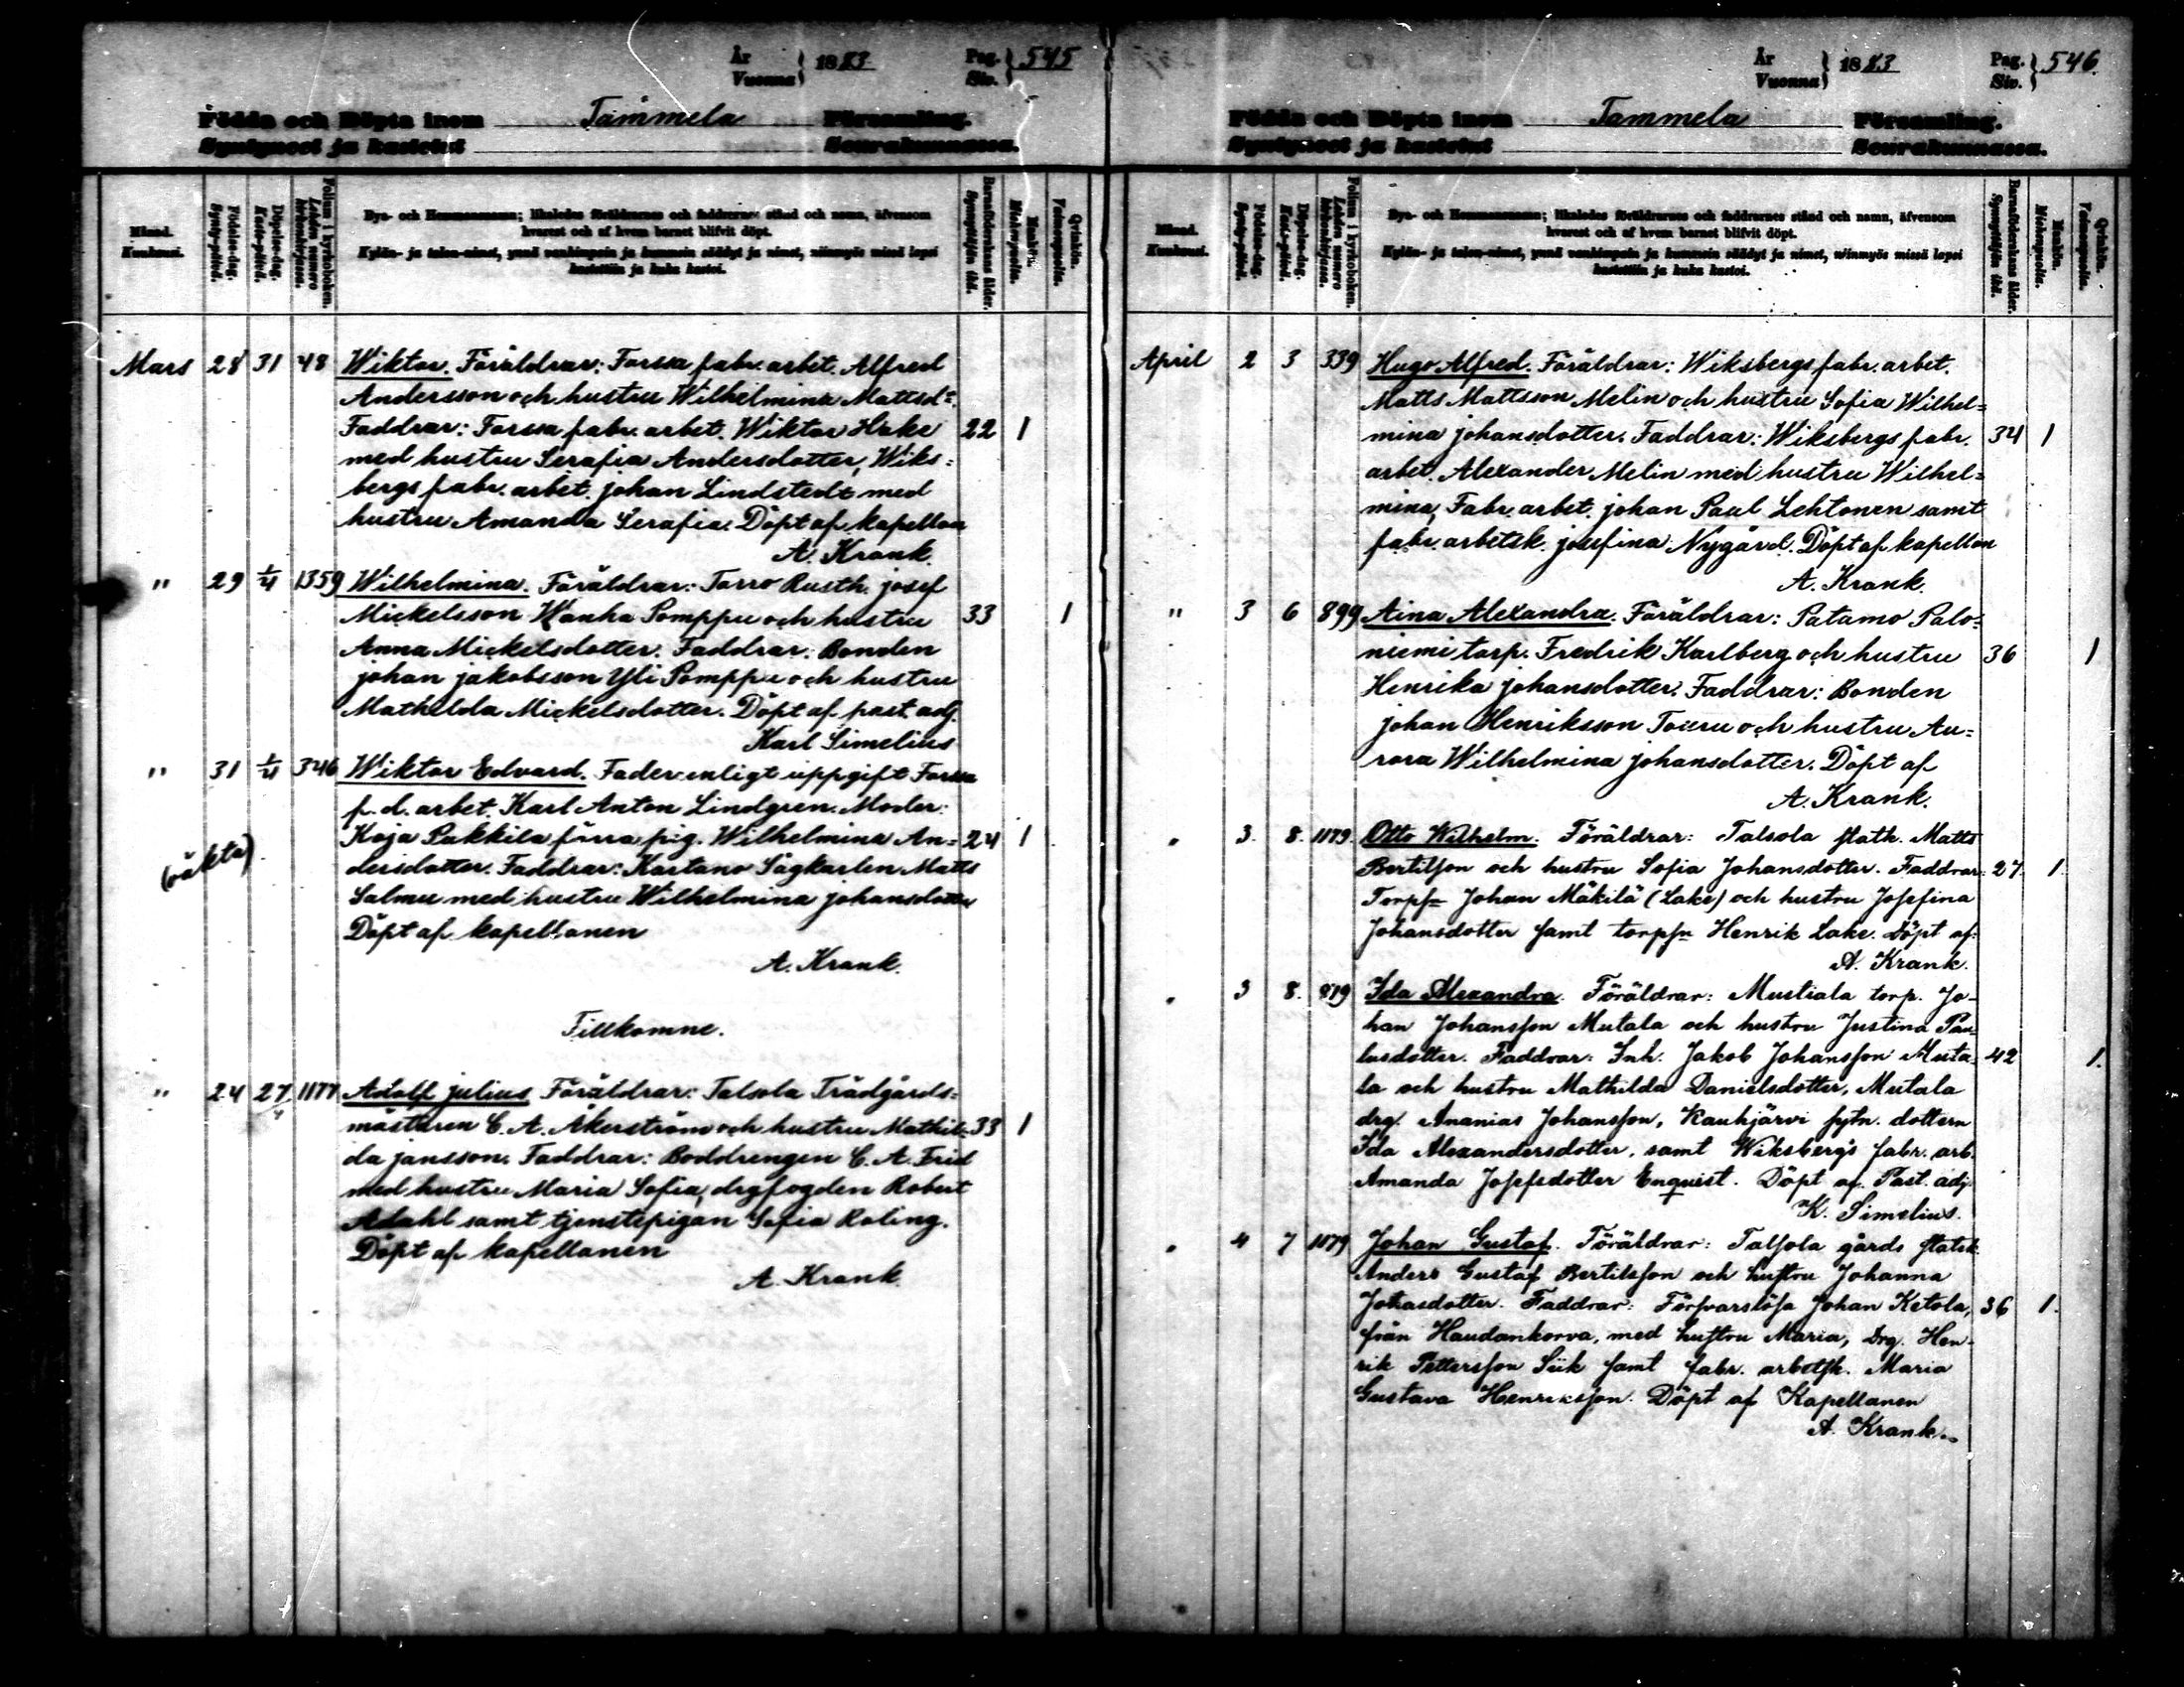 År
Vuonna } 1883 Pag.
Siv. } 545
Födda och Döpta inom Tammela Församling.
Syntyneet ja kastetut Seurakunnassa.
Månad.
Kuukausi.
Födelse-dag.
Synty-päivä.
Döpelse-dag.
Kaste-päivä.
Folium i kyrkoboken.
Lehden numero
kirkonkirjassa.
Bys- och Hemmansnamn; likaledes föräldrarnes och faddrarnes stånd och namn, äfvensom
hvarest och af hvem barnet blifvit döpt.
Kylän- ja talon-nimet, ynnä vanhempain ja kummein säädyt ja nimet, niinmyös missä lapsi
kastettiin ja kuka kastoi.
Barnaföderskans ålder.
Synnyttäjän ikä.
Mankön.
Miehenpuolia.
Qvinkön.
Vaimonpuolia.
Mars 28 31 48 Wiktor. Föräldrar: Forssa fabr. arbet. Alfred
Andersson och hustru Wilhelmina Mattsdr.
Faddrar: Forssa fabr. arbet. Wiktor Hake 22 1
med hustru Serafia Andersdotter, Wiks=
bergs fabr. arbet. Johan Lindstedt med
hustru Amanda Serafia. Döpt af kapellan
A. Krank.
" 29 1/4 1359 Wilhelmina. Föräldrar: Torro Rusth. Josef
Mickelsson Wanha Pomppu och hustru 33 1
Anna Mickelsdotter. Faddrar: Bonden
Johan Jakobsson Yli Pomppu och hustru
Mathilda Mickelsdotter. Döpt af past. adj.
Karl Simelius
" 31 1/4 346 Wiktor Edvard. Fader enligt uppgift Forssa
f. d. arbet. Karl Anton Lindgren. Moder:
(oäkta) Koja Pakkila förra pig. Wilhelmina An= 24 1
dersdotter. Faddrar: Kartano Sågkarlen Matts
Salmu med hustru Wilhelmina Johansdotter
Döpt af kapellanen
A. Krank.
Tillkomne.
" 24 27/4 1177 Adolf Julius Föräldrar: Talsola Trädgårds=
mästaren C. A. Åkerström och hustru Mathil= 33 1
da Jansson. Faddrar: Boddrengen C. A. Frid
med hustru Maria Sofia, drgfogden Robert
Adahl samt tjenstepigan Sofia Roling.
Döpt af kapellanen
A. Krank
År
Vuonna } 1883 Pag.
Siv. } 546.
Födda och Döpta inom Tammela Församling.
Syntyneet ja kastetut Seurakunnassa.
Månad.
Kuukausi.
Födelse-dag.
Synty-päivä.
Döpelse-dag.
Kaste-päivä.
Folium i kyrkoboken.
Lehden numero
kirkonkirjassa.
Bys- och Hemmansnamn; likaledes föräldrarnes och faddrarnes stånd och namn, äfvensom
hvarest och af hvem barnet blifvit döpt.
Kylän- ja talon-nimet, ynnä vanhempain ja kummein säädyt ja nimet, niinmyös missä lapsi
kastettiin ja kuka kastoi.
Barnaföderskans ålder.
Synnyttäjän ikä.
Mankön.
Miehenpuolia.
Qvinkön.
Vaimonpuolia.
April 2 3 339 Hugo Alfred. Föräldrar: Wiksbergs fabr. arbet.
Matts Mattsson Melin och hustru Sofia Wilhel=
mina Johansdotter. Faddrar: Wiksbergs fabr. 34 1
arbet. Alexander Melin med hustru Wilhel=
mina, Fabr. arbet. Johan Paul Lehtonen samt
fabr. arbetsk. Josefina Nygård. Döpt af kapellan
A. Krank.
" 3 6 899 Aina Alexandra. Föräldrar: Patamo Palo=
niemi torp. Fredrik Karlberg och hustru 36 1
Henrika Johansdotter. Faddrar: Bonden
Johan Henriksson Touru och hustru Au=
rora Wilhelmina Johansdotter. Döpt af
A. Krank.
" 3. 8. 1179. Otto Wilhelm. Föräldrar: Talsola stath. Matts
Bertilsson och hustru Sofia Johansdotter. Faddrar: 27. 1.
Torpn Johan Mäkilä (Lake) och hustru Josefina
Johansdotter samt torpn Henrik Lake. Döpt af:
A. Krank.
" 3 8. 819 Ida Alexandra. Föräldrar: Mustiala torp. Jo-
han Johansson Mutala och hustru Justina Pau-
lusdotter. Faddrar: Inh. Jakob Johansson Muta- 42 1.
la och hustru Mathilda Danielsdotter, Mutala
drg. Ananias Johansson, Kauhjärvi sytn. dottern
Ida Alexandersdotter, samt Wiksbergs fabr. arb.
Amanda Josefsdotter Enquist. Döpt af Past. adj.
K. Simelius.
" 4 7 1179 Johan Gustaf. Föräldrar: Talsola gårds statk.
Anders Gustaf Bertilsson och hustru Johanna
Johasdotter. Faddrar: Försvarslösa Johan Ketola, 36 1.
från Haudankorva, med hustru Maria, Drg. Hen-
rik Pettersson Siik samt fabr. arbetsk. Maria
Gustava Henriksson. Döpt af Kapellanen
A. Krank.